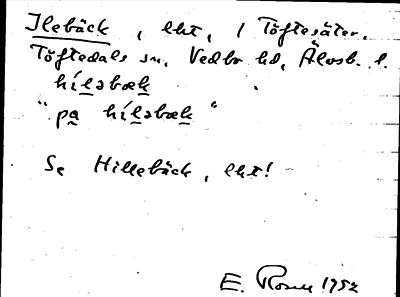 Ilebäck, lht, i Töftesäter,
Töftedals sn. Vedbo hd, Älvsb. l.
hílǝbæk
"pa hílǝbæk"
Se Hillebäck, lht!
E. Rosen 1952